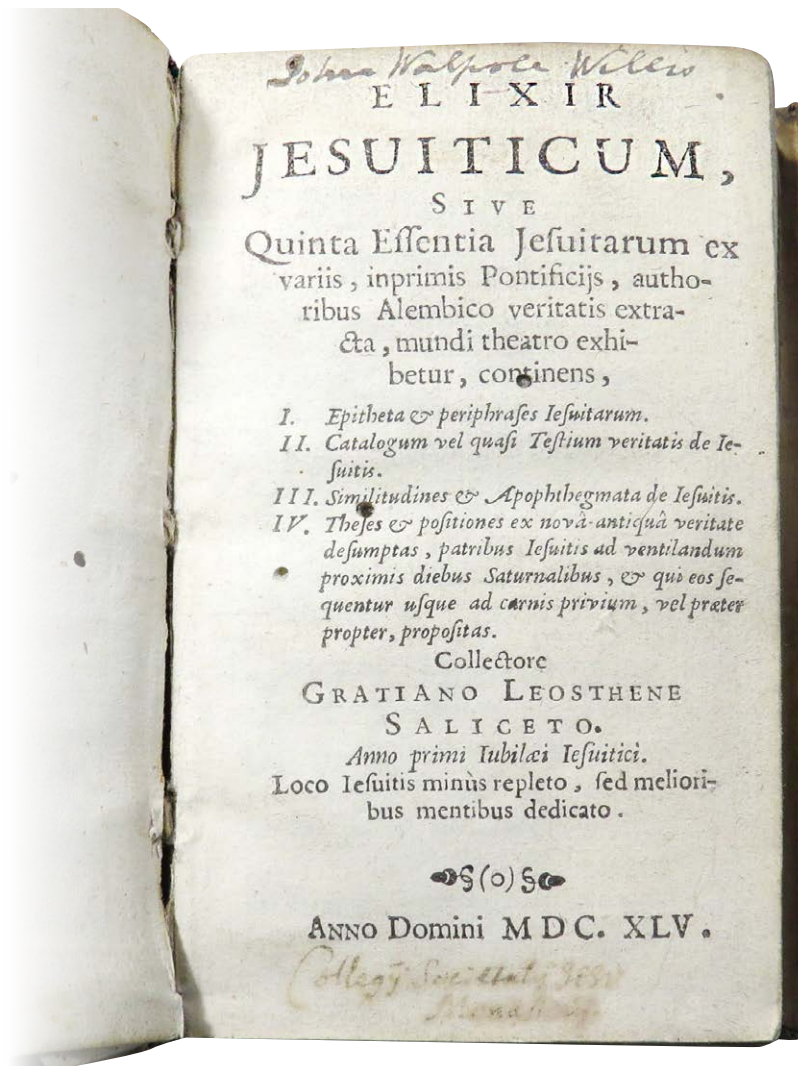 John Walpole Willis
ELIXIR
JESUITICUM,
SIVE
Quinta Eſſentia Jeſuitarum ex
variis, inprimis Pontificijs, autho-
ribus Alembico veritatis extra-
cta, mundi theatro exhi-
betur, continens,
I. Epitheta & periphraſes Ieſuitarum.
II. Catalogum vel quaſi Teſtium veritatis de Ie-
ſuitis.
III. Similitudines & Apophthegmata de Ieſuitis.
IV. Theſes & poſitiones ex novâ-antiquâ veritate
deſumptas, patribus Ieſuitis ad ventilandum
proximis diebus Saturnalibus, & qui eos ſe-
quentur uſque ad carnis privium, vel præter
propter, propoſitas.
Collectore
GRATIANO LEOSTHENE
SALICETO.
Anno primi Iubilæi Ieſuitici.
Loco Ieſuitis minùs repleto, ſed meliori-
bus mentibus dedicato.
§(o)§
ANNO Domini MDC. XLV.
Collegij Societatis